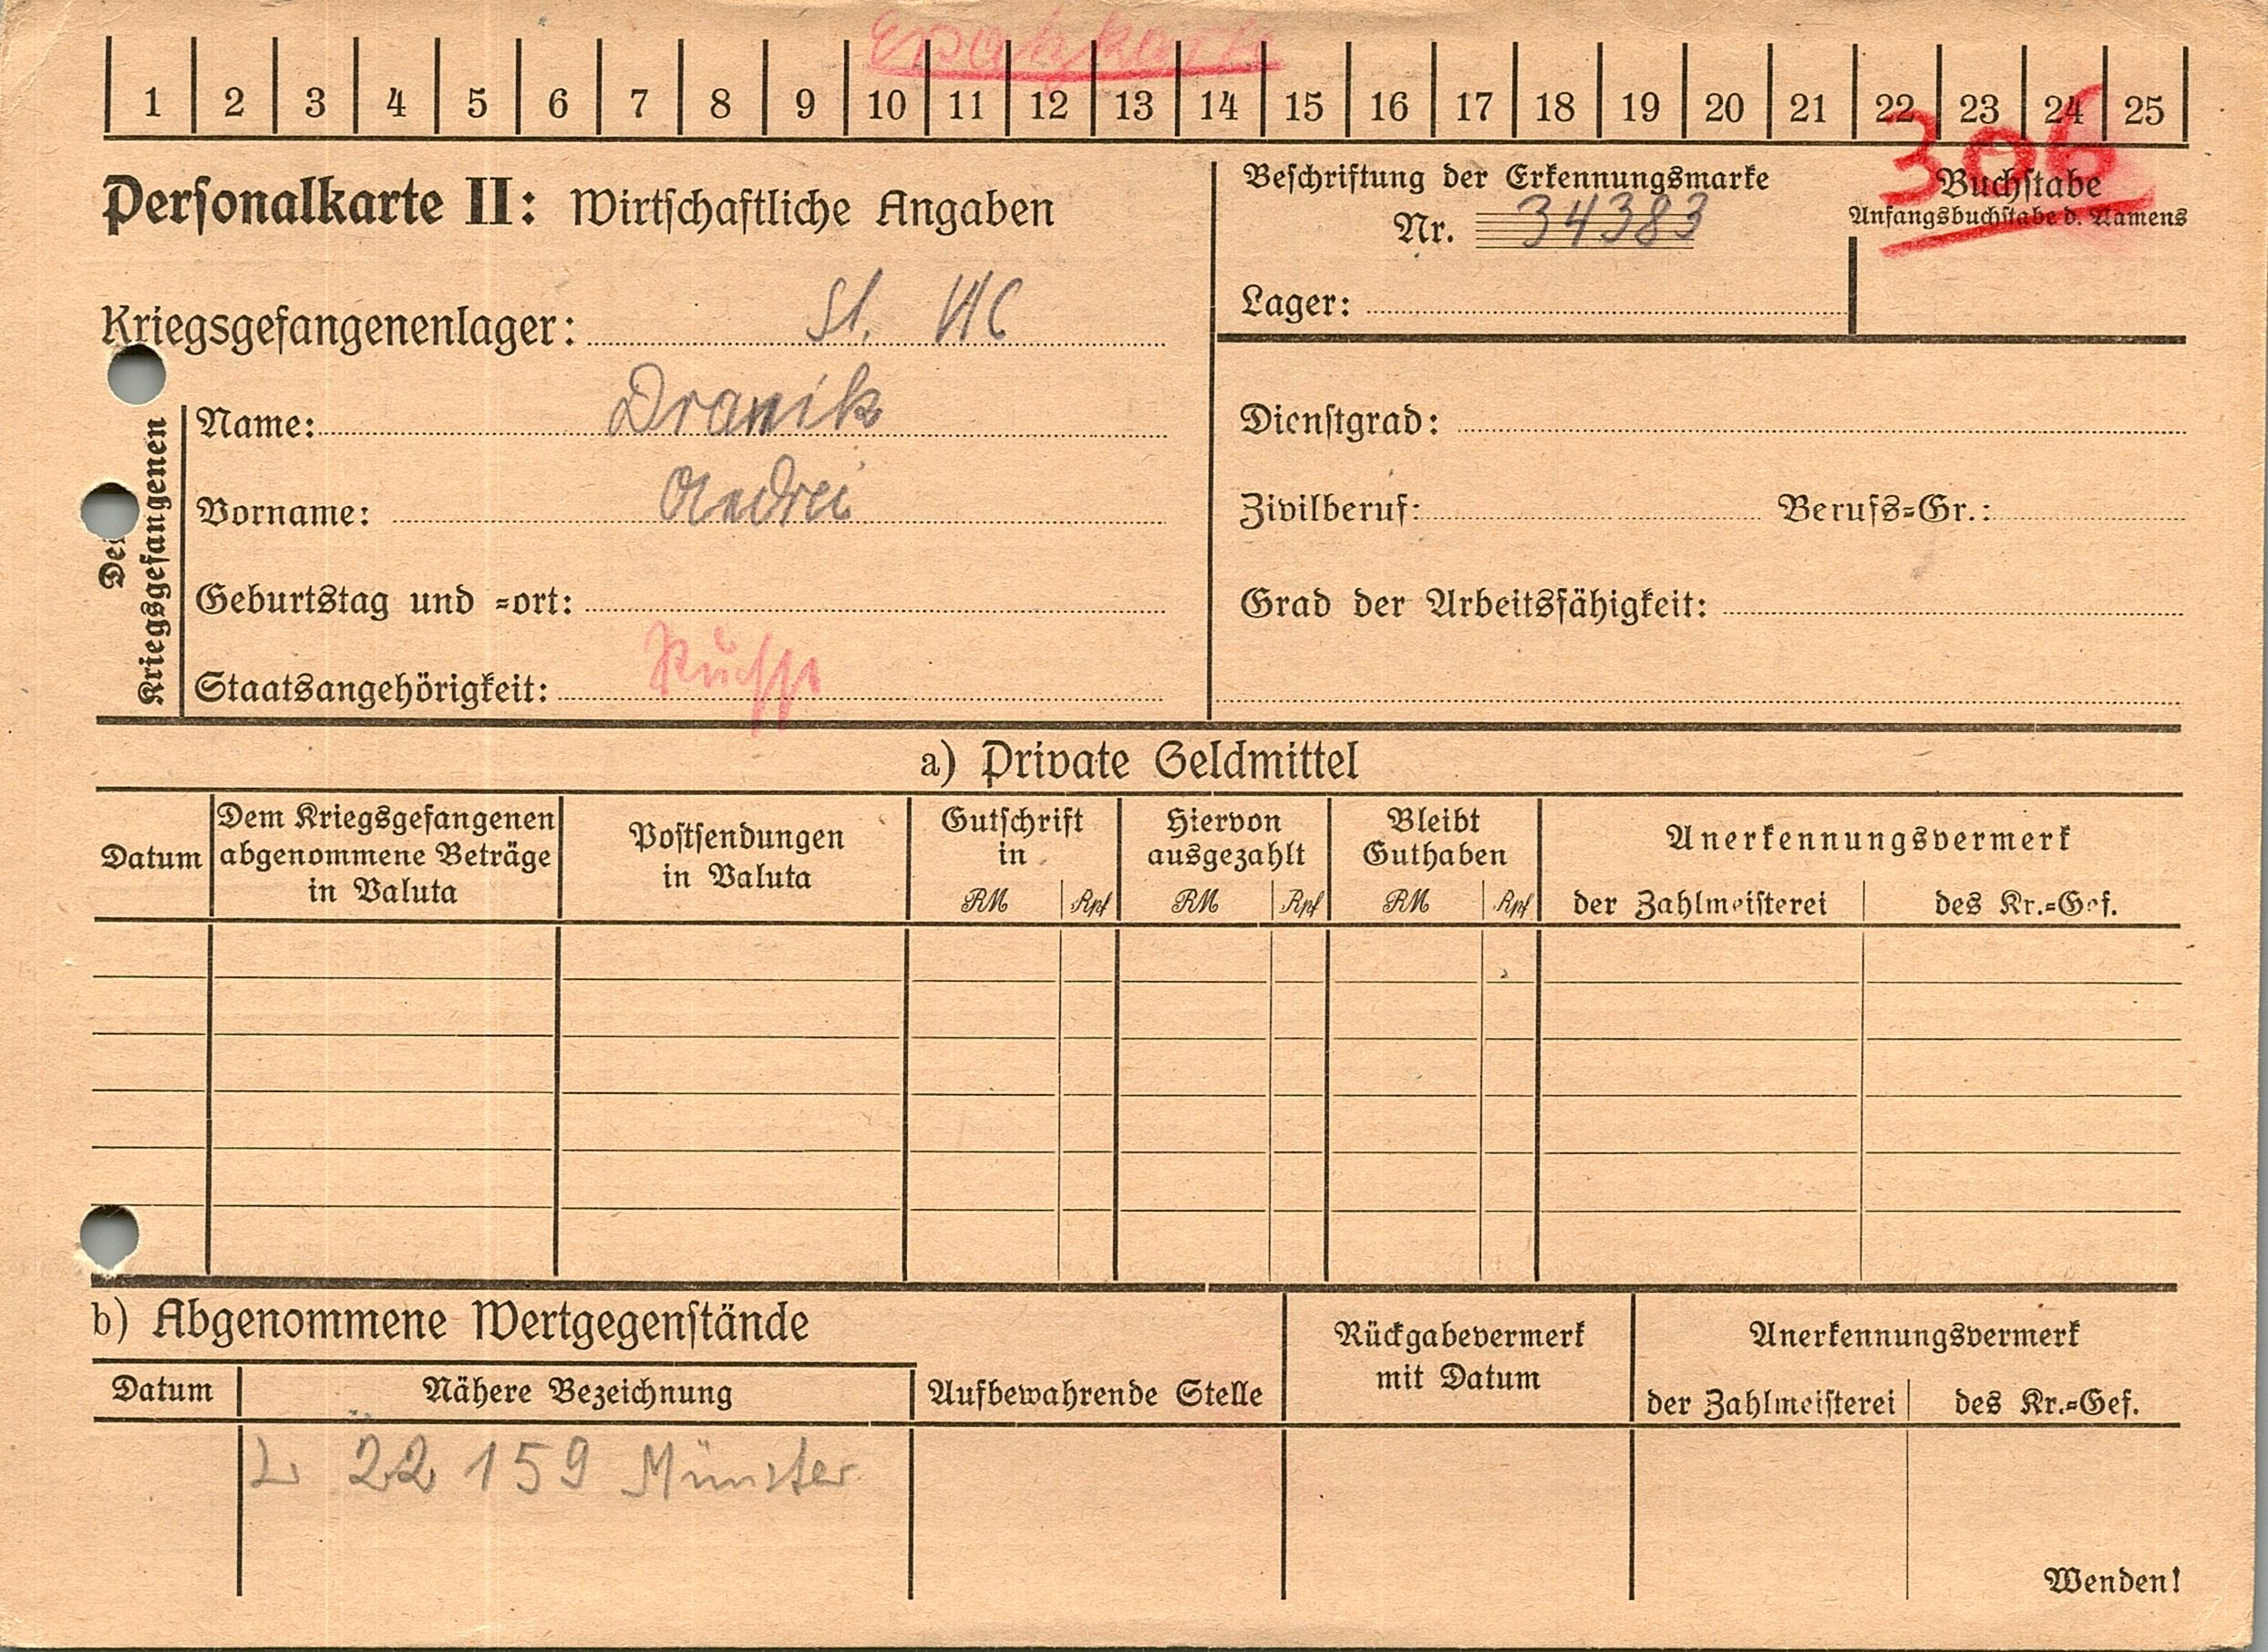 Ersatzkarte
1 2 3 4 5 6 7 8 9 10 11 12 13 14 15 16 17 18 19 20 21 22 23 24 25
306
Personalkarte II: Wirtschaftliche Angaben
Beschriftung der Erkennungsmarke
Nr. 34383
Lager:
Buchstabe
Anfangsbuchstabe d. Namens
Kriegsgefangenenlager: St.
Des Kriegsgefangenen
Name: Dranik
Vorname: Andrei
Geburtstag und =ort:
Staatsangehörigkeit: Russe
Dienstgrad:
Zivilberuf: Berufs=Gr.:
Grad der Arbeitsfähigkeit:
a) Private Geldmittel
Datum
Dem Kriegsgefangenen
abgenommene Beträge
in Valuta
Postsendungen
in Valuta
Gutschrift
in
RM Rpf
Hiervon
ausgezahlt
RM Rpf
Bleibt
Guthaben
RM Rpf
Anerkennungsvermerk
der Zahlmeisterei des Kr.=Gef.
b) Abgenommene Wertgegenstände
Datum Nähere Bezeichnung
Aufbewahrende Stelle
Rückgabevermerk
mit Datum
Anerkennungsvermerk
der Zahlmeisterei des Kr.=Gef.
L 22 159 Münster
Wenden!